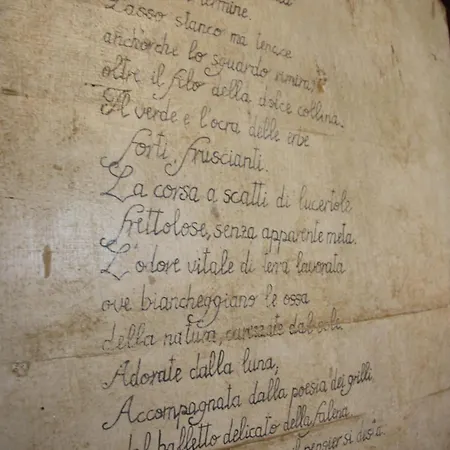 termine.
Lasso stanco ma tenace
anchorche lo sguardo rimira,
oltre il filo della dolce collina.
Il verde e l'ocra delle erbe
forti, fruscianti.
La corsa a scatti di lucertole
frettolose, senza apparente meta.
L'odore vitale di terra lavorata
ove biancheggiano le ossa
della natura, carezzate dal sole.
Adorate dalla luna,
Accompagnata dalla poesia dei grilli,
dal balletto delicato della falena
il pensier si desta.